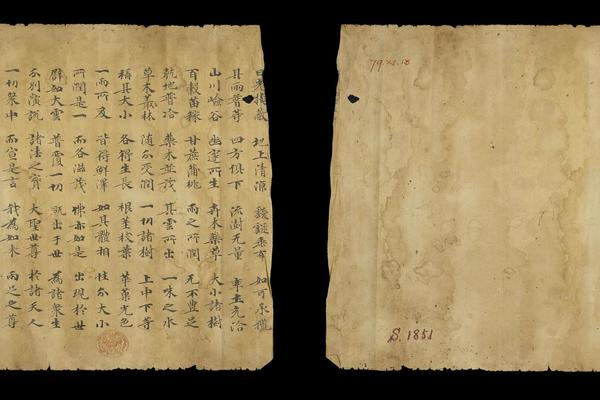 日光掩蔽 地上清涼 靉靆垂布 如可承攬
其雨普等 四方俱下 流澍无量 率土充洽
山川嶮谷 幽邃所生 卉木藥草 大小諸樹
百穀苗稼 甘蔗蒲桃 雨之所潤 无不豐足
乾地普洽 藥木並茂 其雲所出 一味之水
草木叢林 随分受潤 一切諸樹 上中下等
稱其大小 各得生長 根莖枝葉 華菓光色
一雨所及 皆得鮮澤 如其體相 性分大小
所潤是一 而各滋茂 佛亦如是 出現於世
譬如大雲 普覆一切 既出于世 為諸衆生
分別演說 諸法之實 大聖世尊 於諸天人
一切衆中 而宣是言 我為如來 兩足之尊
S. 1851